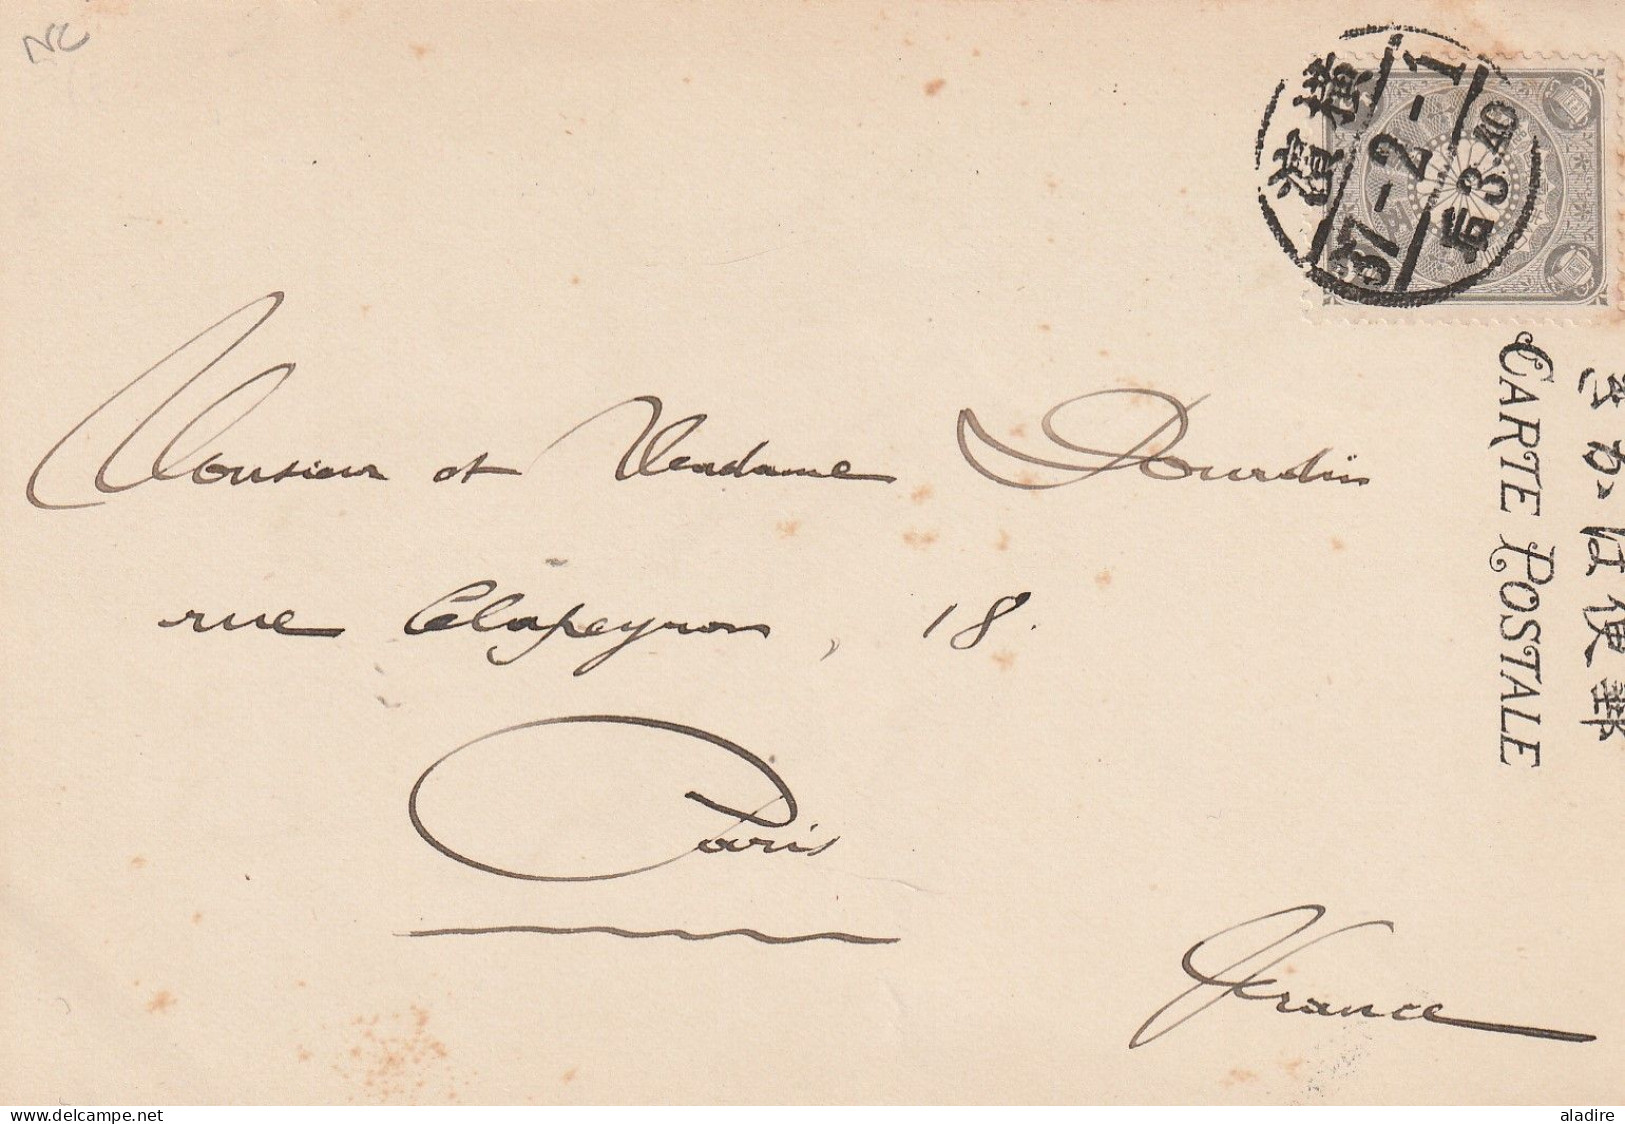 NC
横濱
37-2-1
后3·40
CARTE POSTALE
郵便はがき
Monsieur et Madame Dourdin
rue Clapeyron, 18.
Paris
France
delcampe.net
aladire